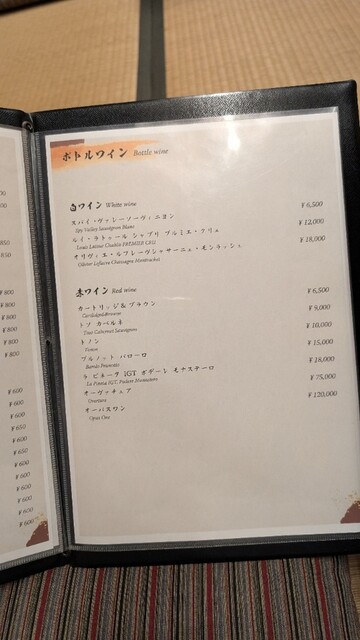 ボトルワイン Bottle wine
白ワイン White wine
スパイ・ヴァレーソーヴィニヨン ¥6,500
Spy Valley Sauvignon Blanc
ルイ・ラトゥール シャブリ プルミエ・クリュ ¥12,000
Louis Latour Chablis PREMIER CRU
オリヴィエ・ルフレーヴシャサーニュ・モンラッシェ ¥18,000
Olivier Leflaive Chassagne Montrachet
赤ワイン Red wine
カートリッジ&ブラウン ¥6,500
Cartlidge&Browne
トソ カベルネ ¥9,000
Toso Cabernet Sauvignon
トノン ¥10,000
プルノット バローロ ¥15,000
Barolo Prunotto
ラ ピネータ IGT ¥18,000
オーヴァチュア ¥75,000
Overture
オーパスワン ¥120,000
Opus One
850
850
¥800
¥800
¥800
¥800
¥800
¥800
¥600
¥600
¥600
¥650
¥600
¥650
¥600
¥600
¥600
¥600
¥600